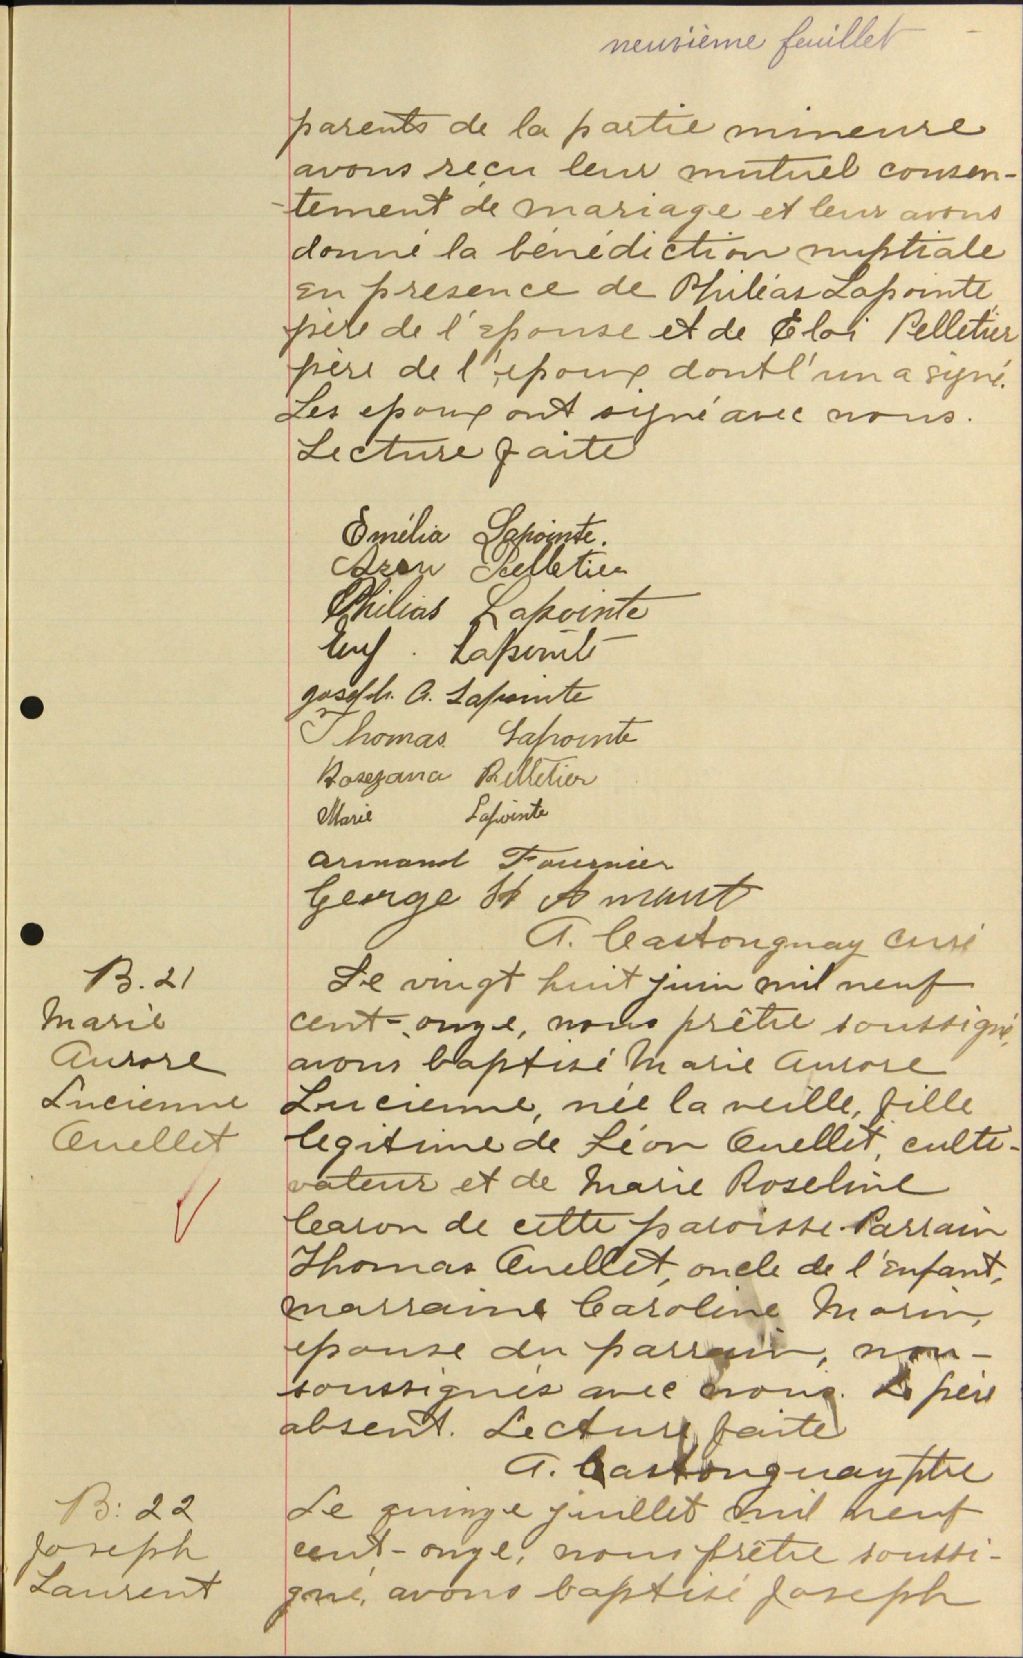 neuvième feuillet
parents de la partie mineure
avons reçu leur mutuel consen-
-tement de mariage et leur avons
donné la bénédiction nuptiale
en presence de Philéas Lapointe
père de l'epouse et de Eloi Pelletier
père de l'epoux dont l'un a signé.
Les epoux ont signé avec nous.
Lecture faite
Emélia Lapointe.
Pelletier
Philias Lapointe
Lapointe
Joseph. A. Lapointe
Thomas Lapointe
Rosezana Pelletier
Marie Lapointe
Armand Fournier
George St Amant
A. Castonguay curé
B. 21
Marie
Aurore
Lucienne
Ouellet
Le vingt huit juin mil neuf
cent-onze, nous prêtre soussigné,
avons baptisé Marie Aurore
Lucienne, née la veille, fille
legitime de Léon Ouellet, culti-
vateur et de Marie Roseline
Caron de cette paroisse. Parrain
Thomas Ouellet, oncle de l'enfant,
marraine Caroline Morin,
epouse du parrain, non-
soussignés avec nous. Le père
absent. Lecture faite
A. Castonguay ptre
B: 22
Joseph
Laurent
Le quinze juillet mil neuf
cent-onze, nous prêtre soussi-
gné, avons baptisé Joseph